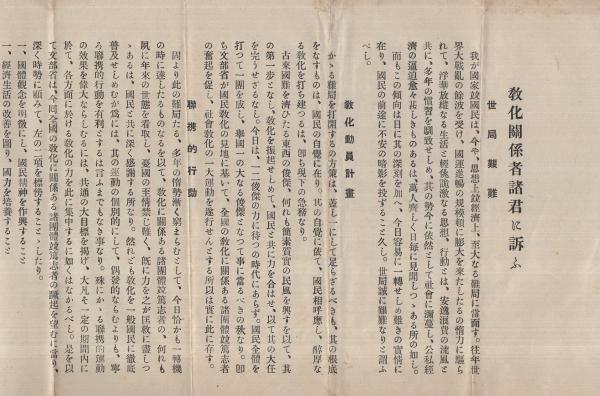 教化關係者諸君に訴ふ
世局艱難
我が國家竝國民は、今や、思想上竝經濟上、至大なる難局に當面す。往年世
界大戰亂の餘波を受け、國運進暢の規模頓に膨大を來たしたるの惰力に驅ら
れて、浮華放縱なる生活と輕佻詭激なる思想、行動とは、安逸浪費の流風と
共に、多年の慣習を馴致せしめ、其の勢今に依然として社會に瀰蔓し、公私經
濟の逼迫愈々甚しきものあるは、萬人齊しく日每に見聞しつゝある所の如し。
而もこの傾向は日に其の深刻を加へ、今日容易に一轉せしめ難きの實情に
在り、國民の前途に不安の暗影を投ずること久し。世局誠に艱難なりと謂ふ
べし。
敎化動員計畫
かゝる難局を打開するの方策は、蓋し一にして足らざるべきも、其の根底
をなすものは、國民の自覺に在り、其の自覺に依て、國民相呼應し、醇厚な
る敎化を打ち建つるは、卽ち現下の急務なり。
古來國難を濟ひたる東西の俊傑、何れも簡素質實の民風を興すを以て、其
の第一步となし、敎化を振起せしめて、國民と共に力を合はせ、以て其の大任
を完うせざるなし。今日は、一二俊傑の力に待つの時代にあらず。國民全體を
打つて一團を成し、擧國一の大なる俊傑となつて事に當るべきの秋なり。卽
ち文部省が國民敎化の見地に基いて、全國の敎化に關係ある諸團體竝篤志者
の奮起を促し、社會敎化の一大運動を遂行せんとする所以は實に此に存す。
聯携的行動
固より此の難局たる、多年の情勢漸く窮まらむとして、今日恰かも一轉機
の時に達したるものなるを以て、敎化に關係ある諸團體竝篤志者の、何れも
夙に年來の世態を看取し、憂國の至情禁じ難く、旣に力を之が匡救に盡しつ
ゝあるは、國民と共に深く感謝する所なり。然れども敎化を一般國民に徹底
普及せしめむが爲には、其の運動の個別的にして、偶發的ならむよりも、寧
ろ聯携的行動を有利とするは言ふまでもなき事なり。殊にかゝる聯携的運動
の效果を偉大ならしむるには、共通の大目標を揭げ、大凡そ一定の期間內に
於て、各方面に於ける敎化の力を此に集中するに如くはなかるべし。是を以
て文部省は、今回全國の敎化に關係ある諸團體竝篤志者の蹶起を望むに當り、
深く時勢に顧みて、左の二項を標榜することゝしたり。
一、國體觀念を明徵にし、國民精神を作興すること
一、經濟生活の改善を圖り、國力を培養すること